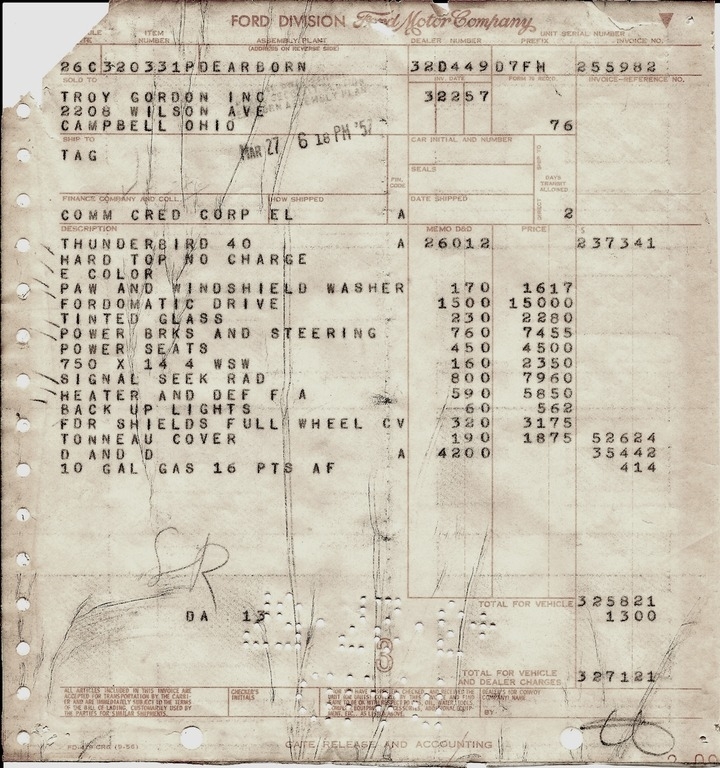 FORD DIVISION Ford Motor Company
ITEM NUMBER ASSEMBLY PLANT (ADDRESS ON REVERSE SIDE) DEALER NUMBER PREFIX UNIT SERIAL NUMBER INVOICE NO.
26C320331PDEARBORN 32D449D7FH 255982
SOLD TO INV. DATE INVOICE-REFERENCE NO.
TROY GORDON INC 32257
2208 WILSON AVE
CAMPBELL OHIO 76
MAR 27 6 18 PM '57
SHIP TO CAR INITIAL AND NUMBER SHIP TO
TAG
SEALS
FIN. CODE DAYS TRANSIT ALLOWED
FINANCE COMPANY AND COLL. HOW SHIPPED DATE SHIPPED DIRECT
COMM CRED CORP EL A 2
DESCRIPTION MEMO D&D PRICE $
THUNDERBIRD 40 A 26012 237341
HARD TOP NO CHARGE
E COLOR
PAW AND WINDSHIELD WASHER 170 1617
FORDOMATIC DRIVE 1500 15000
TINTED GLASS 230 2280
POWER BRKS AND STEERING 760 7455
POWER SEATS 450 4500
750 X 14 4 WSW 160 2350
SIGNAL SEEK RAD 800 7960
HEATER AND DEF F A 590 5850
BACK UP LIGHTS 60 562
FDR SHIELDS FULL WHEEL CV 320 3175
TONNEAU COVER 190 1875 52624
D AND D A 4200 35442
10 GAL GAS 16 PTS AF 414
TOTAL FOR VEHICLE 325821
DA 13 1300
TOTAL FOR VEHICLE AND DEALER CHARGES 327121
ALL ARTICLES INCLUDED IN THIS INVOICE ARE
ACCEPTED FOR TRANSPORTATION BY THE CARRI-
ER AND ARE IMMEDIATELY SUBJECT TO THE TERMS
IN THE BILL OF LADING, CUSTOMARILY USED BY
THE PARTIES FOR SIMILAR SHIPMENTS.
CHECKER'S INITIALS
DEALER'S OR CONVOY COMPANY NAME
BY
FD-479 CRG (9-56)
GATE RELEASE AND ACCOUNTING